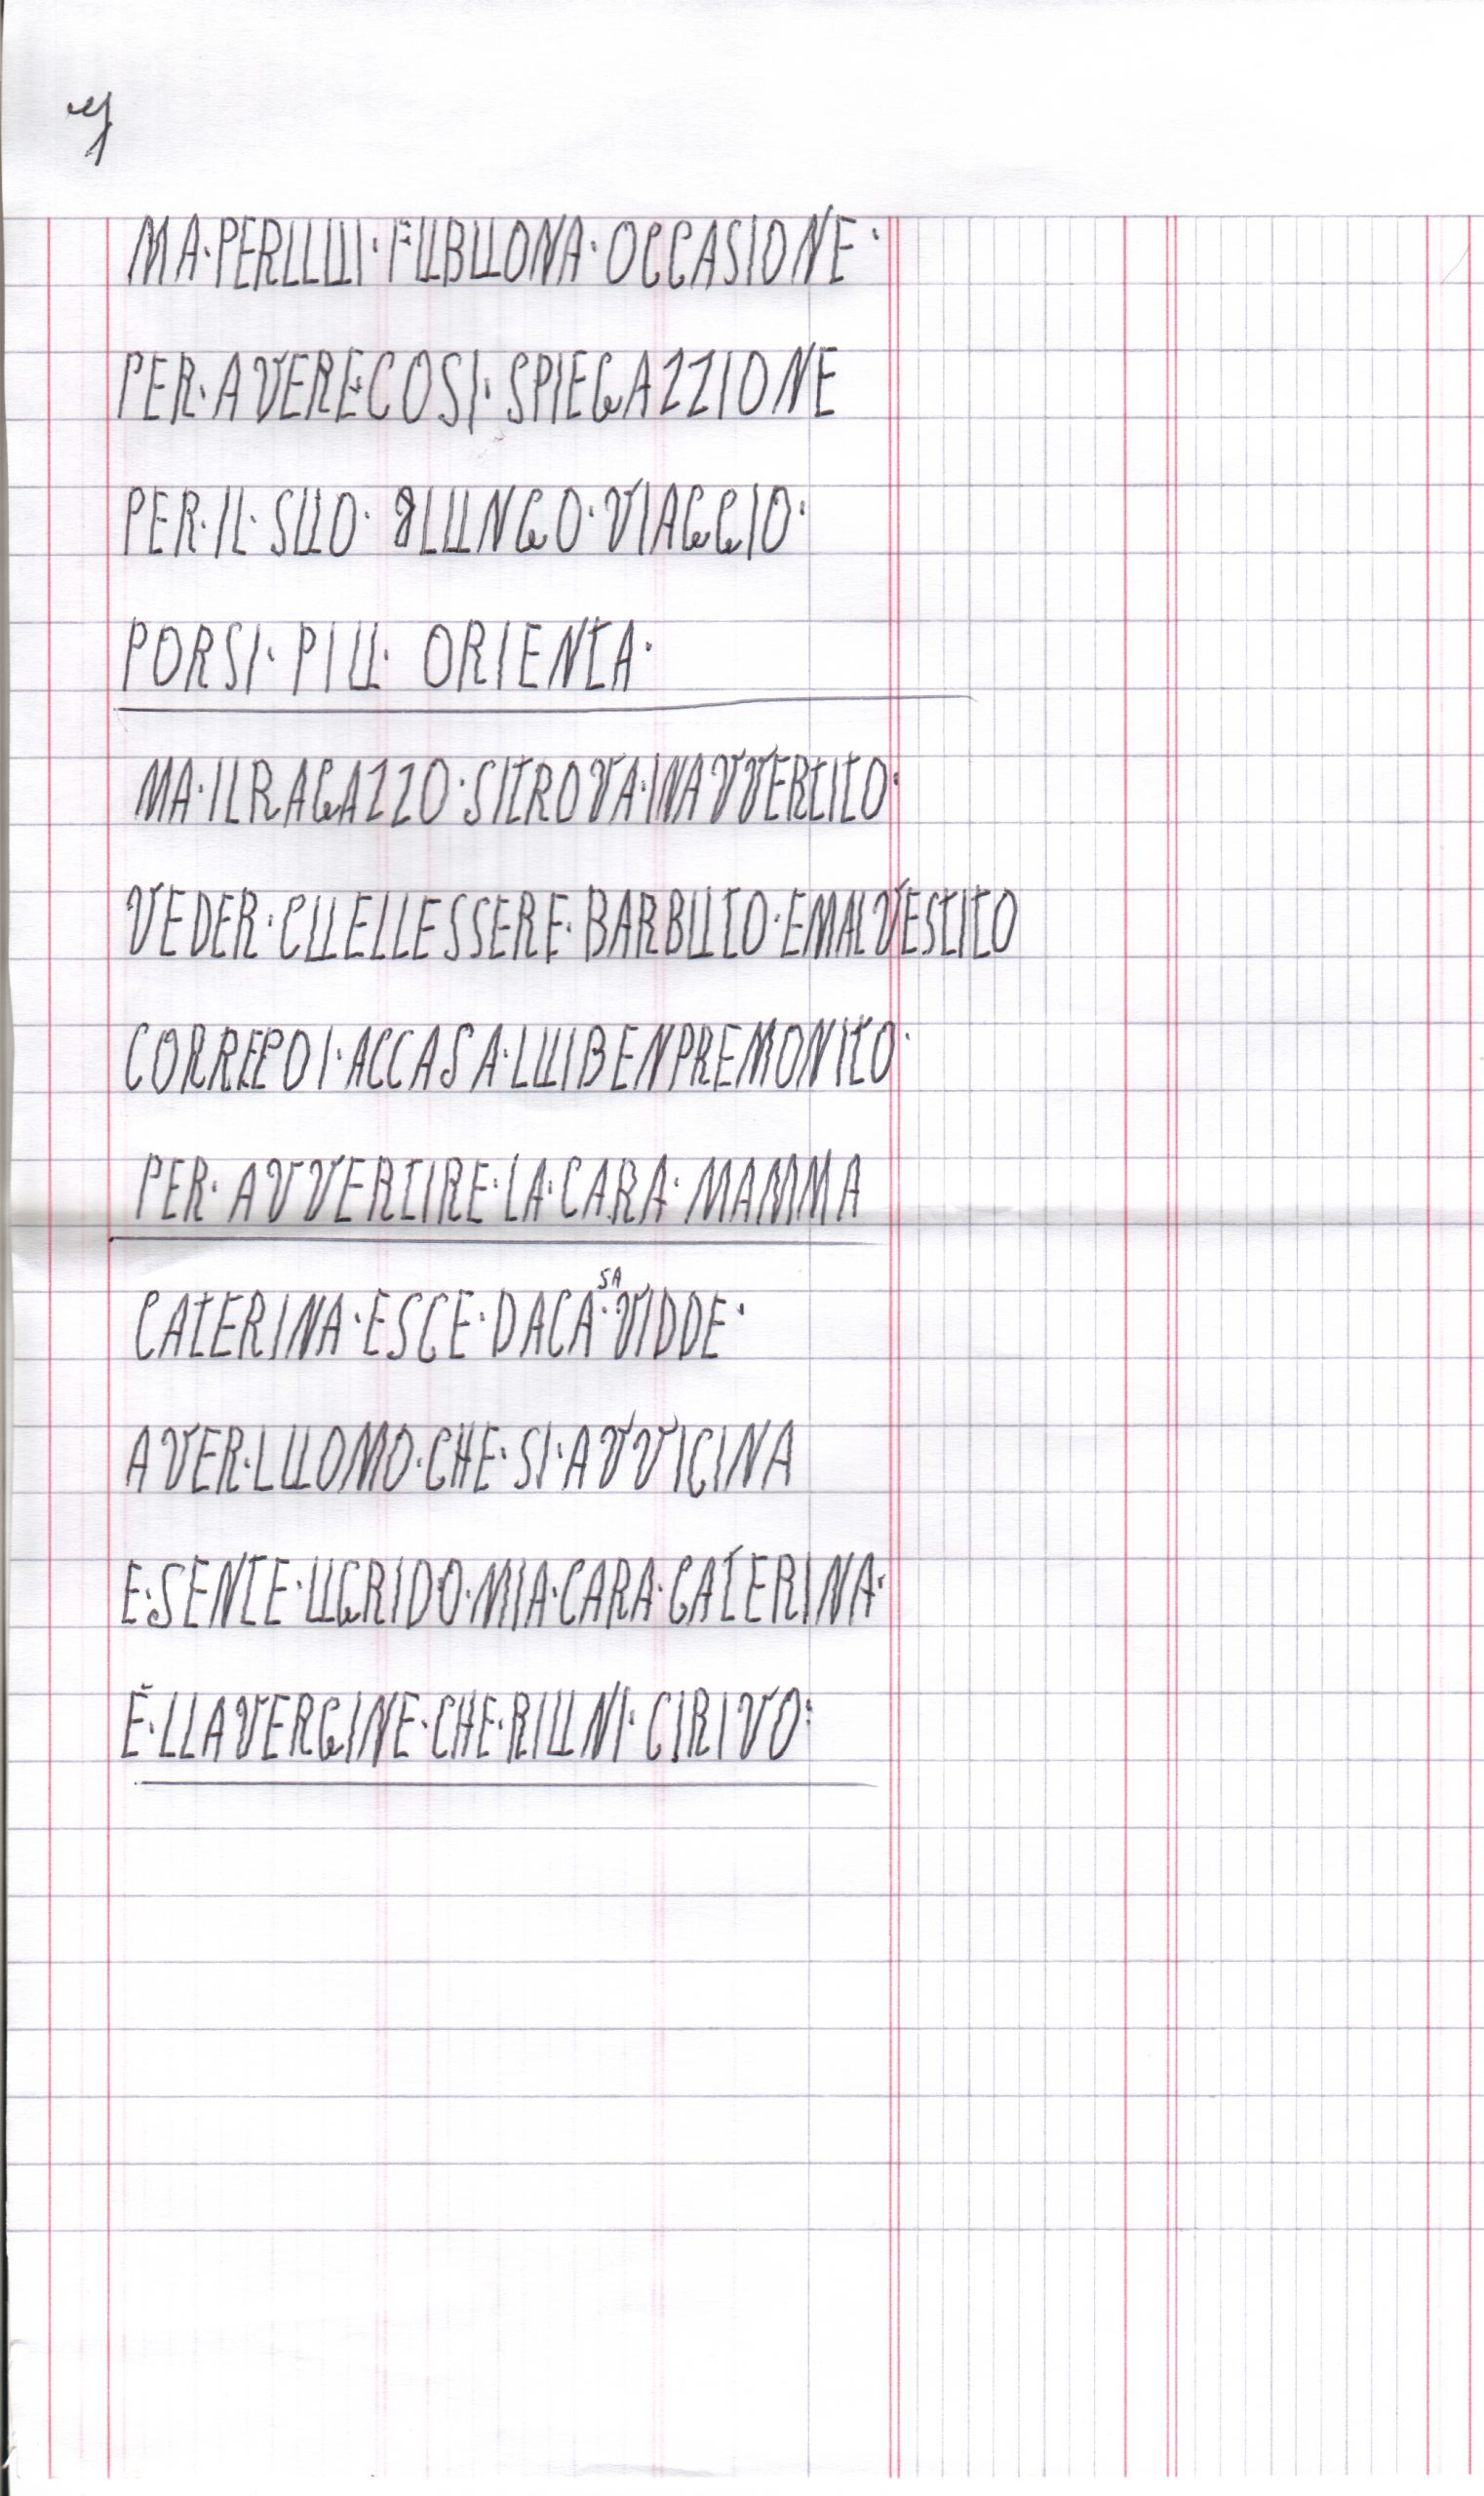 MA·PERLLUI·FUBUONA·OCCASIONE·
PER·AVERE·COSI·SPIEGAZZIONE
PER·IL·SUO·LUNGO·VIAGGIO·
PORSI·PIU·ORIENTA·
MA·ILRAGAZZO·SITROVA·INAVVERTITO·
VEDER·CUELLESSERE·BARBUTO·EMALVESTITO
CORREPOI·ACCASA·LUIBENPREMONITO·
PER·AVVERTIRE·LA·CARA·MAMMA
CATERINA·ESCE·DACASA·VIDDE·
AVER·LUOMO·CHE·SI·AVVICINA
E·SENTE·UGRIDO·MIA·CARA·CATERINA·
È·LLAVERGINE·CHE·RIUNI·CIRIVO: